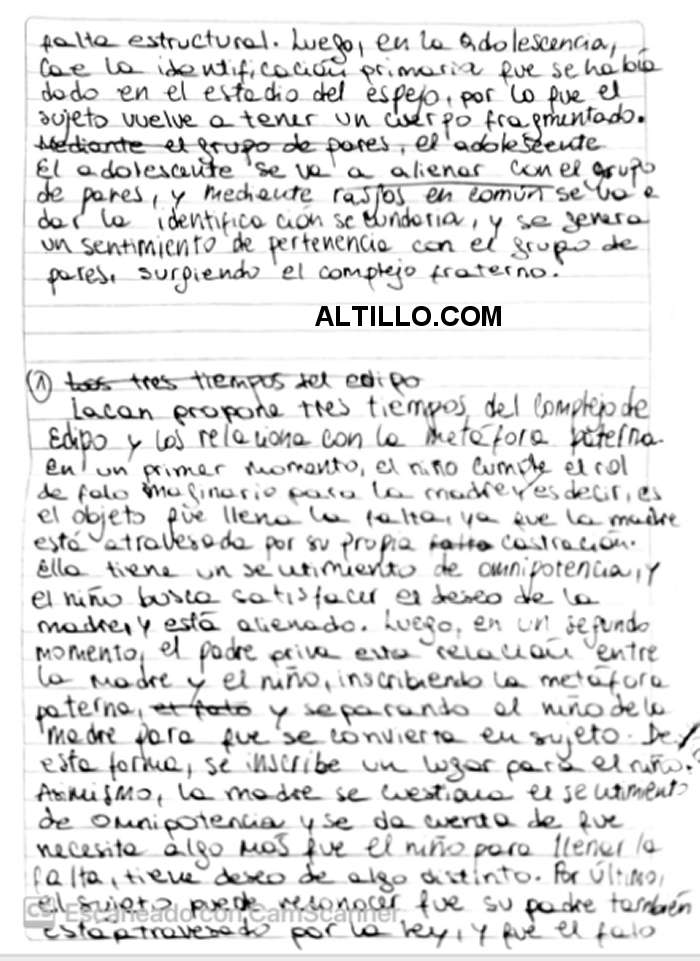 falta estructural. Luego, en la adolescencia,
cae la identificación primaria que se había
dado en el estadio del espejo, por lo que el
sujeto vuelve a tener un cuerpo fragmentado.
Mediante el grupo de pares, el adolescente
El adolescente se va a alienar con el grupo
de pares, y mediante rasgos en común se va a
dar la identificación secundaria, y se genera
un sentimiento de pertenencia con el grupo de
pares, surgiendo el complejo fraterno.
ALTILLO.COM
① Los tres tiempos del edipo
Lacan propone tres tiempos del complejo de
Edipo y los relaciona con la metáfora paterna.
En un primer momento, el niño cumple el rol
de falo imaginario para la madre, es decir, es
el objeto que llena la falta, ya que la madre
está atravesada por su propia falta castración.
Ella tiene un sentimiento de omnipotencia, y
el niño busca satisfacer el deseo de la
madre, y está alienado. Luego, en un segundo
momento, el padre priva esta relación entre
la madre y el niño, inscribiendo la metáfora
paterna, el falo y separando al niño de la
madre para que se convierta en sujeto. De
esta forma, se inscribe un lugar para el niño.
Asimismo, la madre se cuestiona el sentimiento
de omnipotencia y se da cuenta de que
necesita algo más que el niño para llenar la
falta, tiene deseo de algo distinto. Por último,
el sujeto puede reconocer que su padre también
está atravesado por la ley, y que el falo
CS Escaneado con CamScanner